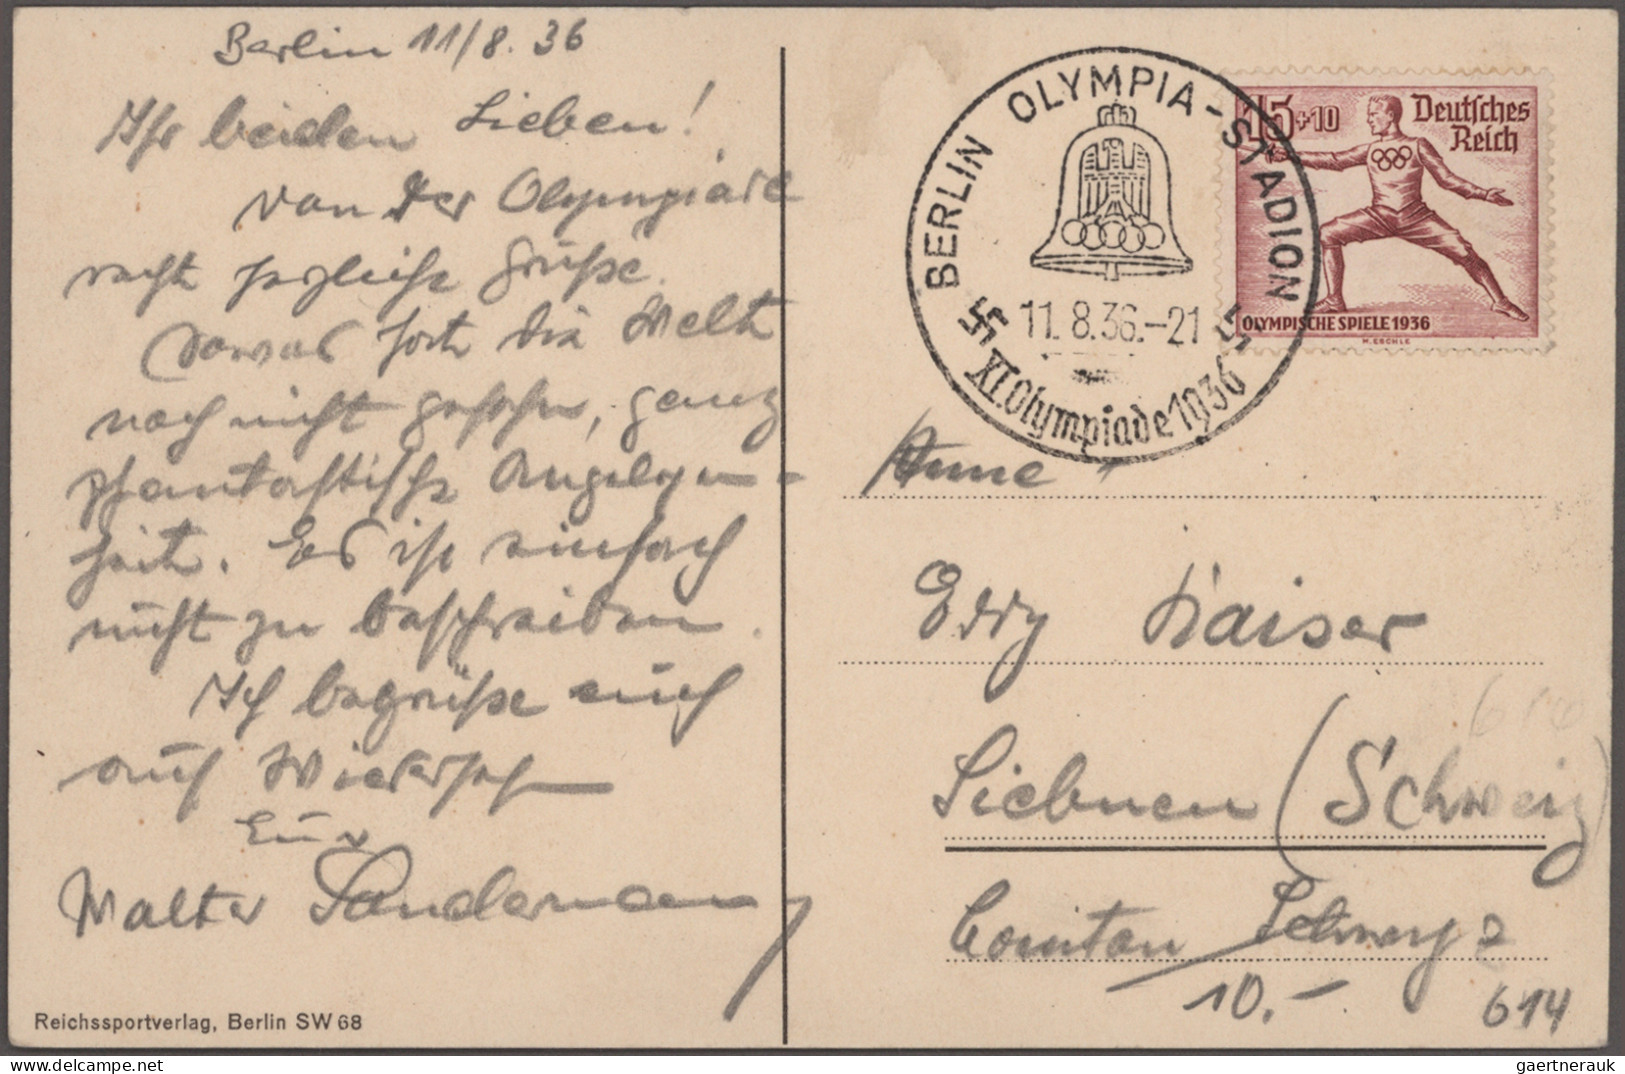 Berlin 11/8. 36
Ihr beiden Lieben!
Von der Olympiade
recht herzliche Grüße.
Sowas hat die Welt
noch nicht gesehen, ganz
phantastische Angelegen-
heit. Es ist einfach
nicht zu beschreiben.
Ich begrüße euch
auf Wiedersehn
Euer
Walter Sandermann
Reichssportverlag, Berlin SW 68
BERLIN OLYMPIA-STADION
11.8.36.-21
XI. Olympiade 1936
15+10 Deutsches
Reich
OLYMPISCHE SPIELE 1936
H. ESCHLE
Anne
Eddy Kaiser
Siebnen (Schweiz)
Schwyz
10.-
614
gaertnerauk